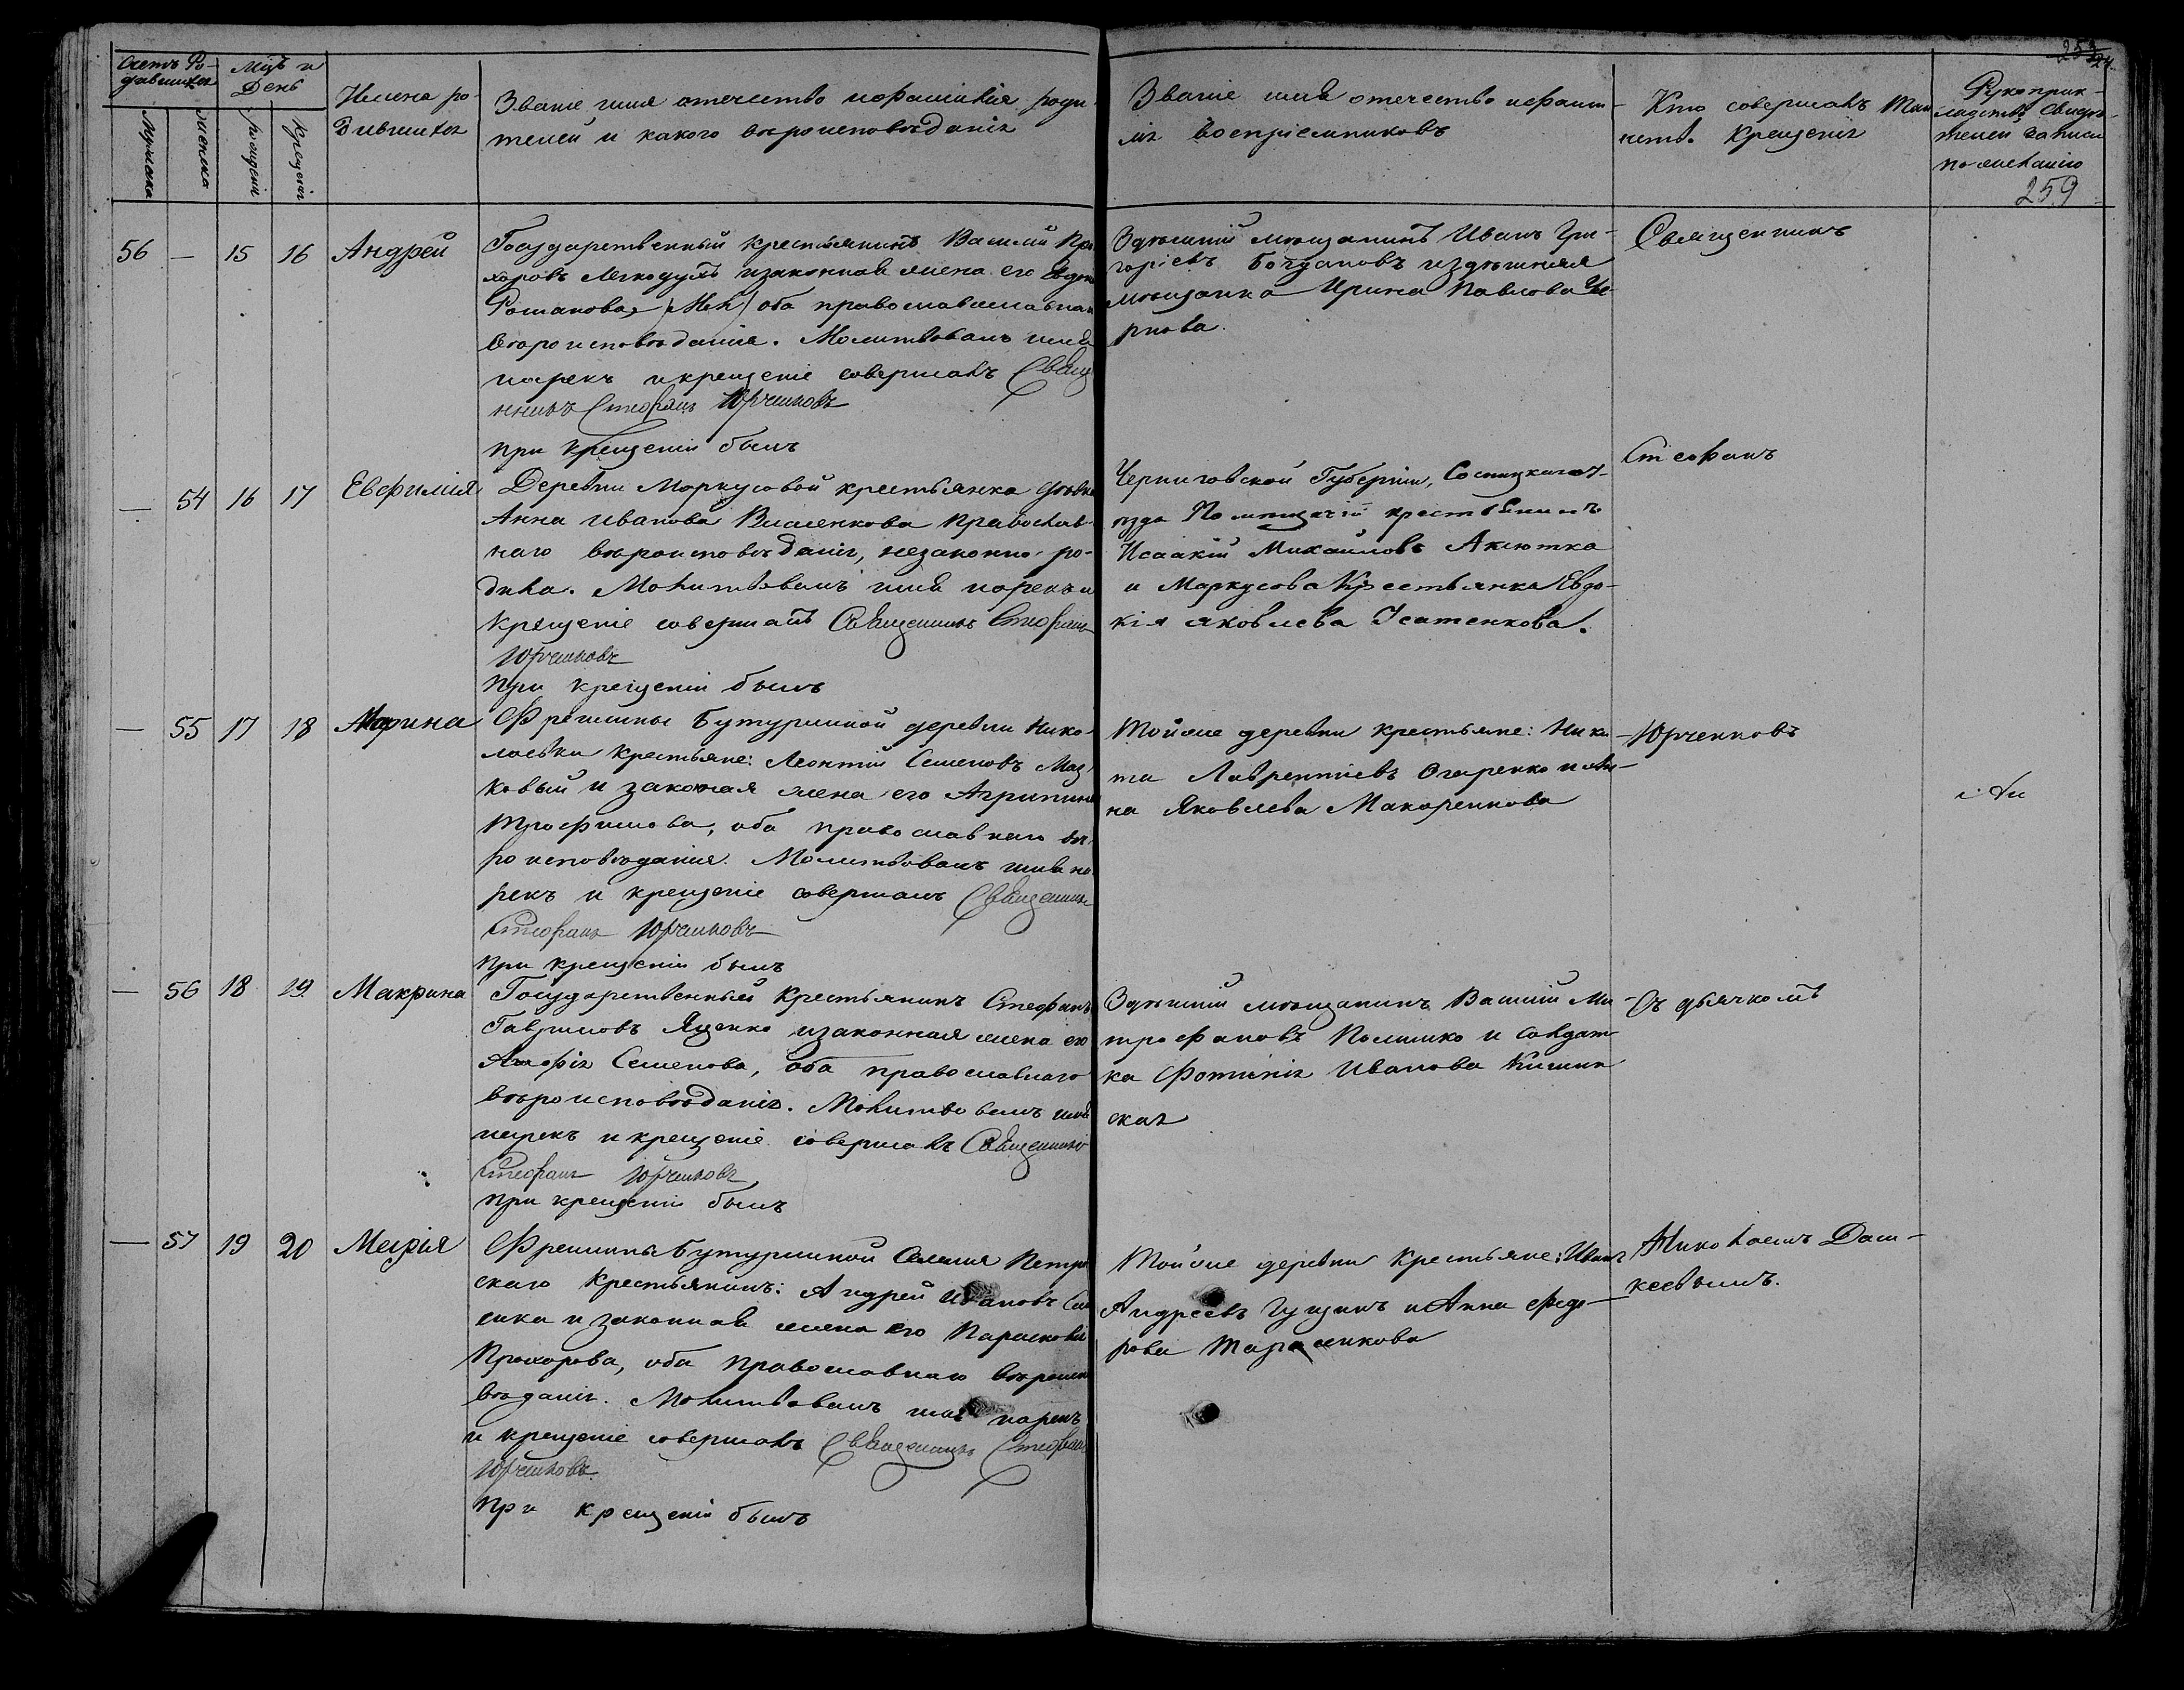 253
24.
Счетъ Ро-
дившихся
Мужеска
женска
Мѣсяцъ и
День
рожденія
крещенія
Имена ро-
дившихся
Званіе имя отечество и фамилія роди-
телей и какого вѣроисповѣданія
Званіе имя отечество и фами-
лія воспріемниковъ
Кто совершалъ Таин
ство Крещенія
Рукоприк-
ладство свидѣ-
телей записи
по желанію
259
56 — 15 16 Андрей
Государственный крестьянинъ Василій Про
хоровъ Легкодухъ и законная жена его Евдо
Романова, оба православнаго
вѣроисповѣданія. Молитвовалъ имя
нарекъ и крещеніе совершалъ Свяще
нникъ Стефанъ Юрченковъ
при крещеніи былъ
Здѣшній мѣщанинъ Иванъ Гри-
горіевъ Богдановъ и здѣшняя
мѣщанка Ирина Павлова Че-
рнова.
Священникъ
— 54 16 17 Евфимія
Деревни Маркусовой крестьянка дѣвка
Анна Иванова Власенкова православ-
наго вѣроисповѣданія, незаконно ро-
дила. Молитвовалъ имя нарекъ и
крещеніе совершалъ Священникъ Стефанъ
Юрченковъ
при крещеніи былъ
Черниговской Губерніи, Сосницкаго у-
ѣзда крестьянинъ
Исаакій Михайловъ Аксютка
и Маркусова Крестьянка Евдо-
кія Яковлева Усатенкова.
Стефанъ
— 55 17 18 Марина
Фрейлины Бутурлиной деревни Нико-
лаевки крестьяне: Леонтій Семеновъ Маз
ковый и законая жена его Агрипина
Трофимова, оба православнаго вѣ-
роисповѣданія. Молитвовалъ имя на
рекъ и крещеніе совершалъ Священникъ
Стефанъ Юрченковъ
при крещеніи былъ
Тойже деревни крестьяне: Ники-
та Лаврентіевъ Огаренко и Ан-
на Яковлева Макаренкова
Юрченковъ
— 56 18 19 Макрина
Государственный Крестьянинъ Стефанъ
Гавриловъ Яценко и законная жена его
Семенова, оба православнаго
вѣроисповѣданія. Молитвовалъ имя
нарекъ и крещеніе совершалъ Священникъ
Стефанъ Юрченковъ
при крещеніи былъ
Здѣшній мѣщанинъ Василій Ми-
трофановъ и солдат
ка Фотинія Иванова
ская
Съ дьячкомъ
— 57 19 20 Марія
Фрейлины Бутурлиной Селенія Петров
скаго Крестьянинъ: Андрей Ивановъ
енка и законная жена его Парасковія
Прохорова, оба православнаго вѣроиспо
вѣданія. Молитвовалъ имя нарекъ
и крещеніе совершалъ Священникъ Стефанъ
Юрченковъ.
При крещеніи былъ
Тойже деревни Крестьяне: Иванъ
Андреевъ Гущинъ и Анна Федо-
рова Тарасенкова
Николаемъ Даш-
кевычемъ.